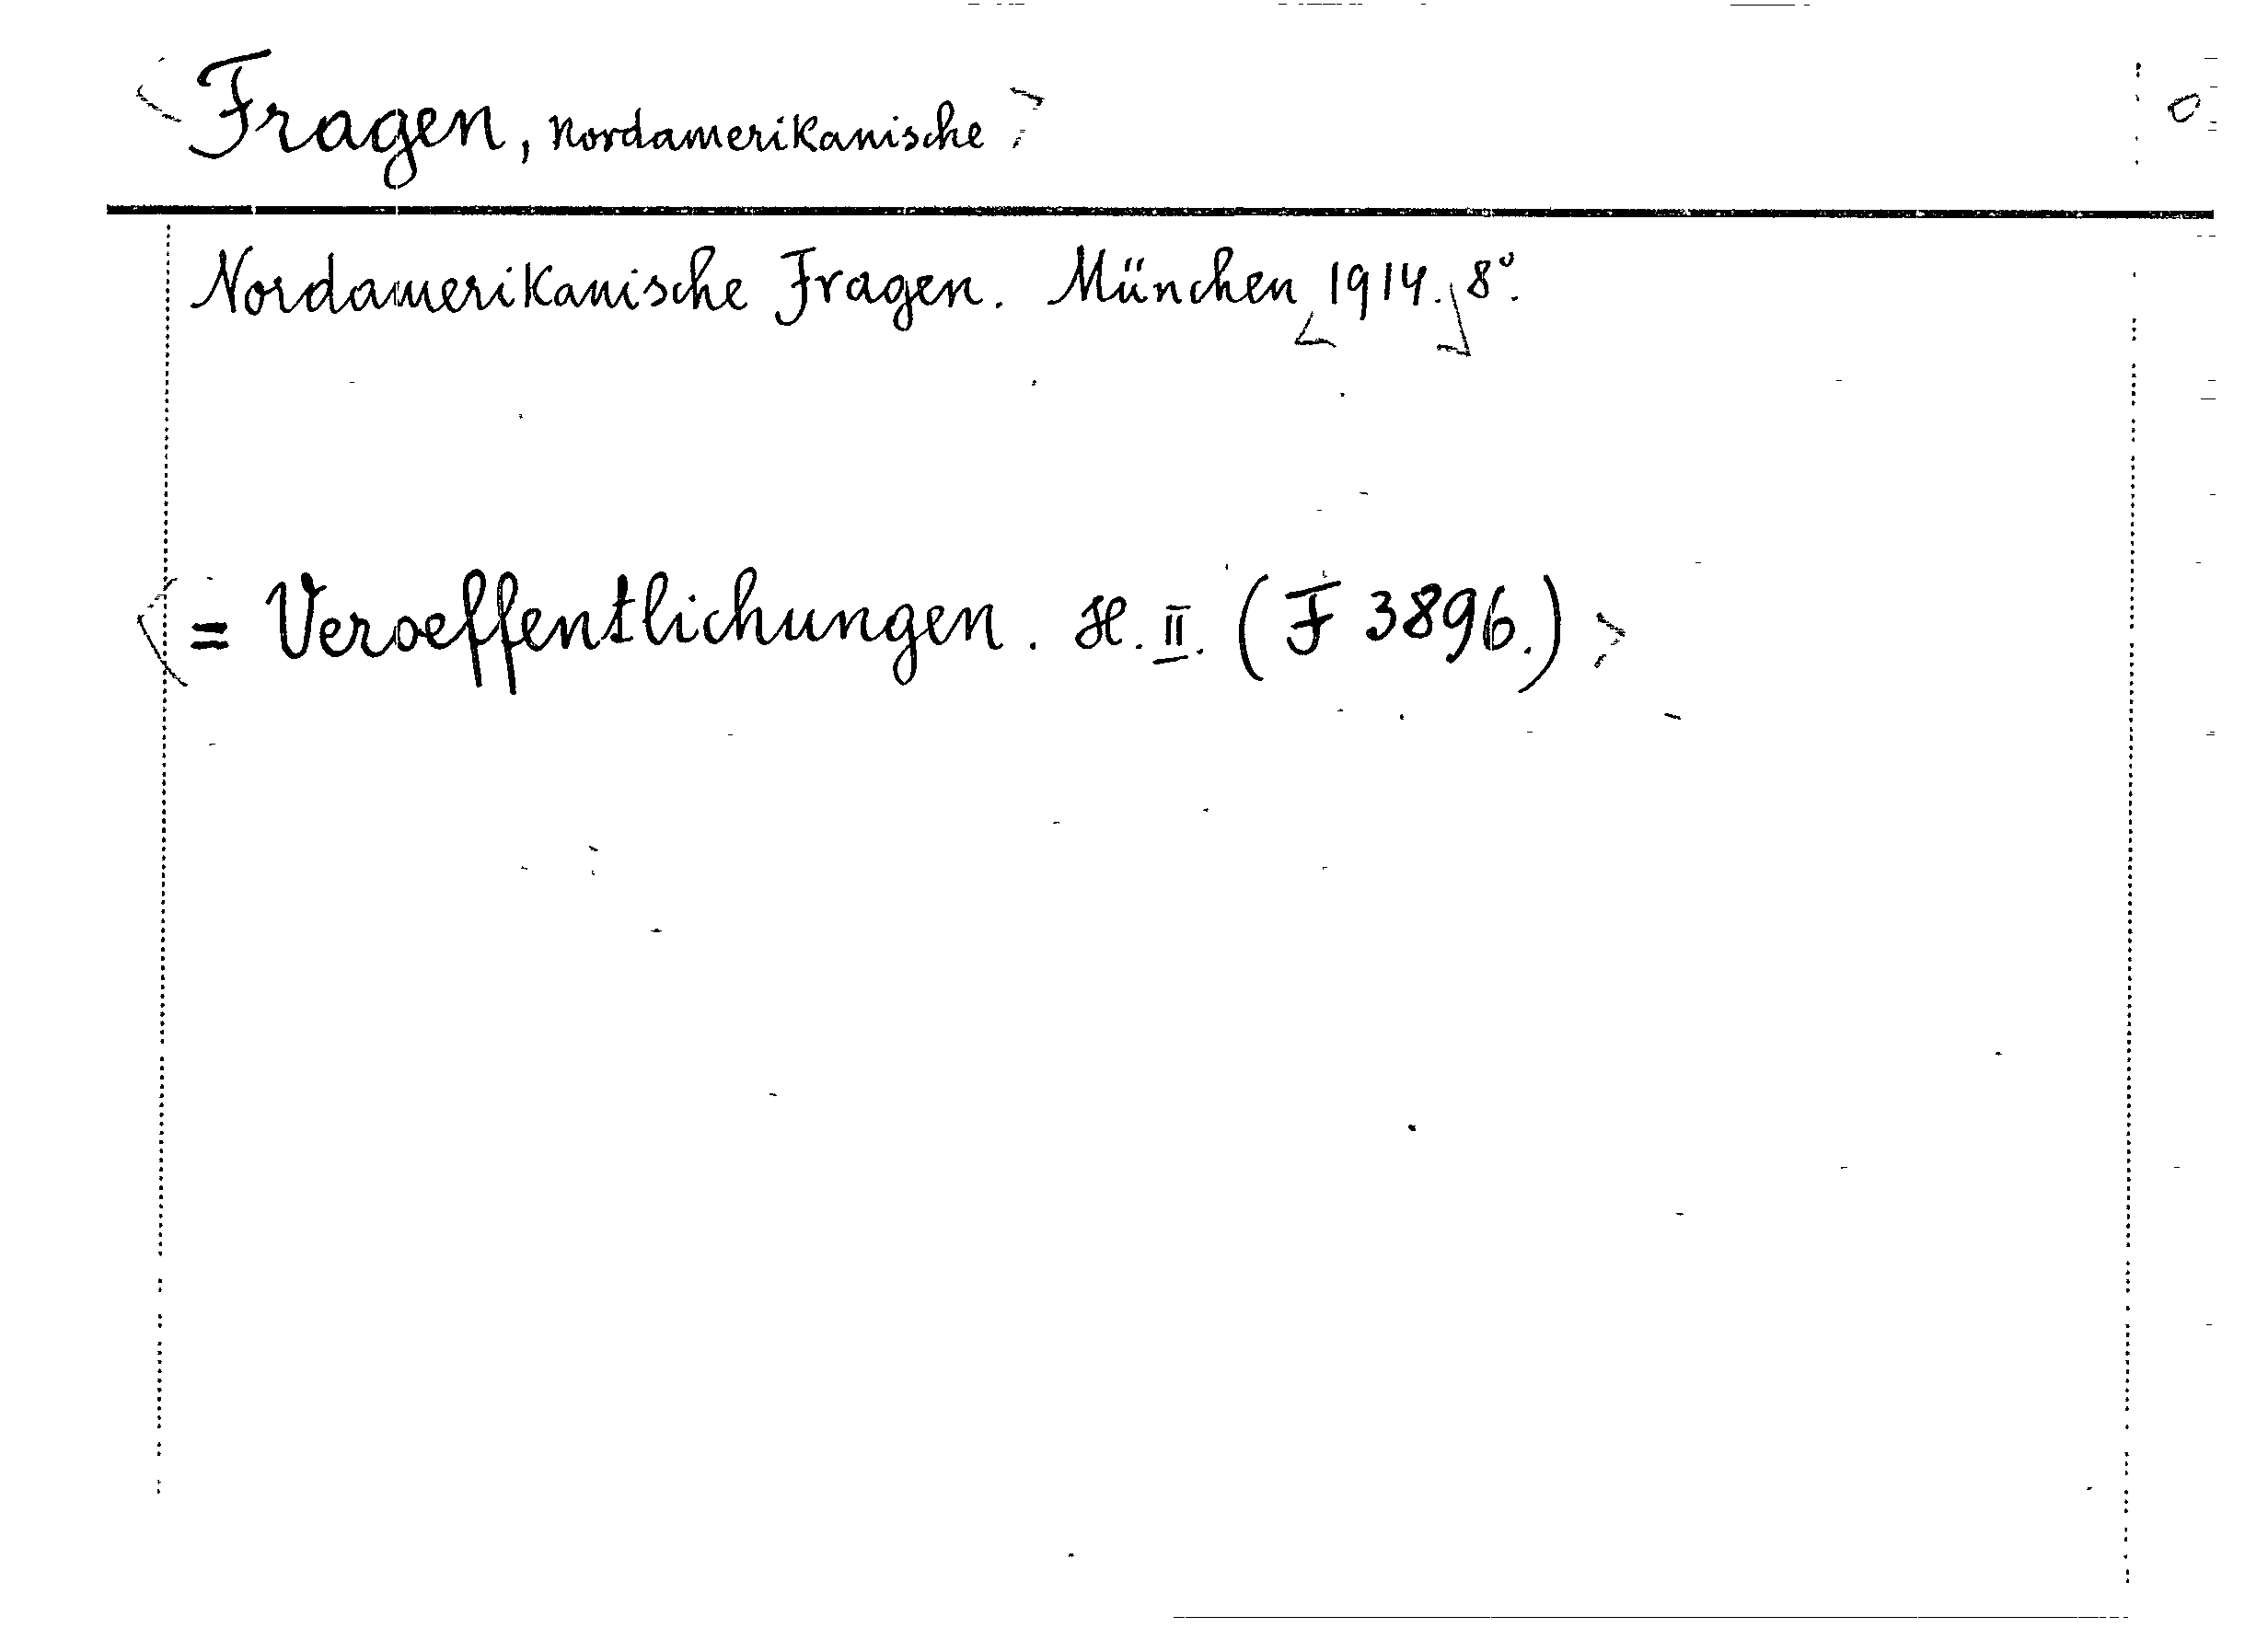 <Fragen, Nordamerikanische>
Nordamerikanische Fragen. München <1914.> 8°.
<= Veroeffentlichungen. H. II. (F 3896.)>